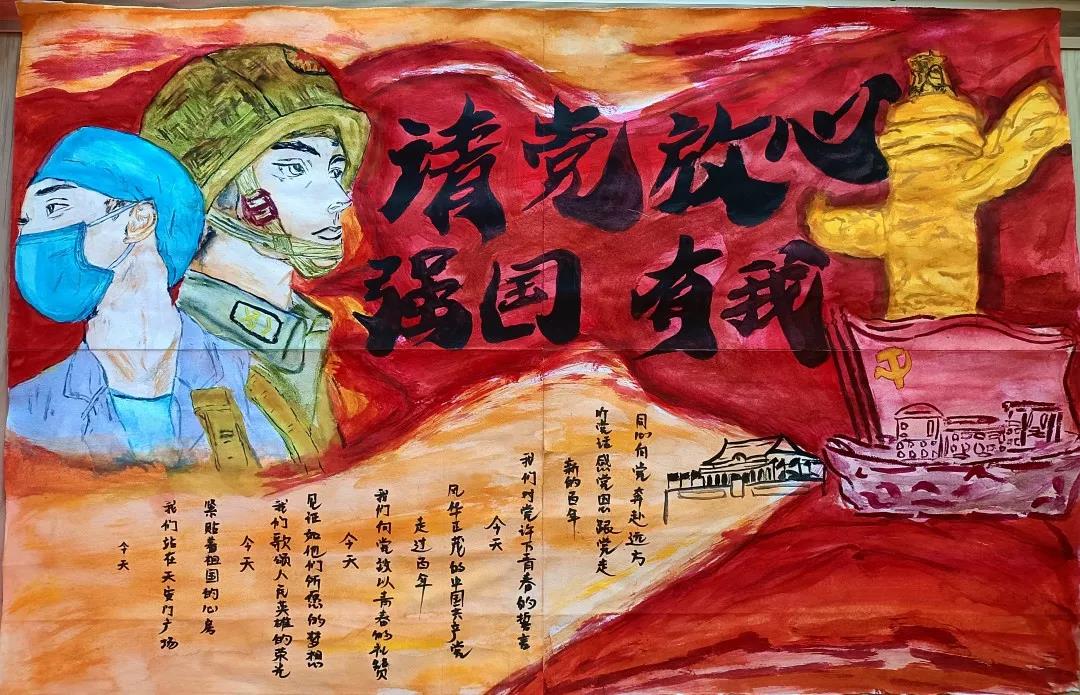 请党放心
强国有我
今天
我们站在天安门广场
紧贴着祖国的心房
今天
我们歌颂人民英雄的荣光
见证如他们所愿的梦想
今天
我们向党致以青春的礼赞
走过百年
风华正茂的中国共产党
今天
我们对党许下青春的誓言
新的百年
听党话 感党恩 跟党走
同心向党 奔赴远方